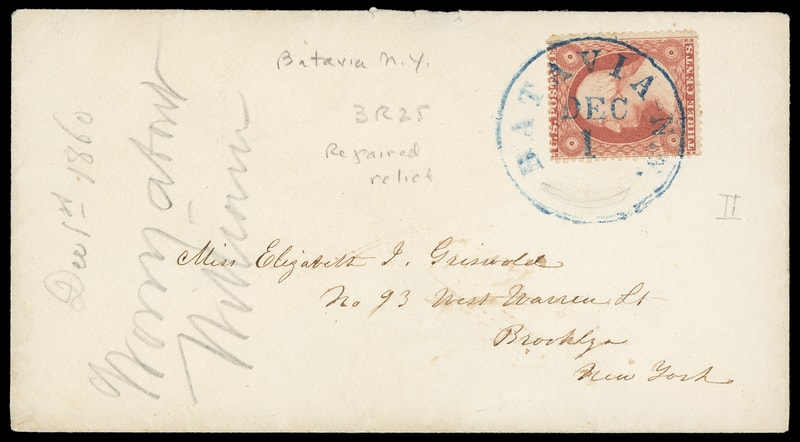 Batavia N.Y.
3R25
Repaired
relief
BATAVIA N.Y.
DEC
1
U.S. POSTAGE
THREE CENTS
II
Dec 1st 1860
Worry about
William
Miss Elizabeth I. Griswold
No 93 West Warren St
Brooklyn
New York